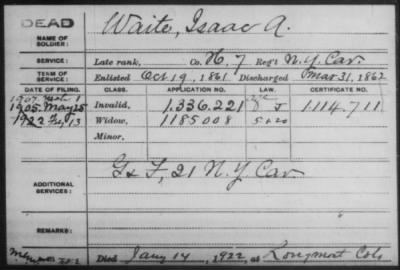 DEAD
NAME OF SOLDIER: Waite, Isaac A.
SERVICE: Late rank, Co. H, 7 Reg't N.Y. Cav.
TERM OF SERVICE: Enlisted Oct 19, 1861 Discharged Mar 31, 1862
DATE OF FILING. CLASS. APPLICATION NO. LAW. CERTIFICATE NO.
1907
1905 May 25 Invalid, 1.336.221 1.114.711
1922 13 Widow, 1185008
Minor,
ADDITIONAL SERVICES: G & F, 21 N.Y. Cav
REMARKS:
Died Jany 14, 1922, at Longmont Colo